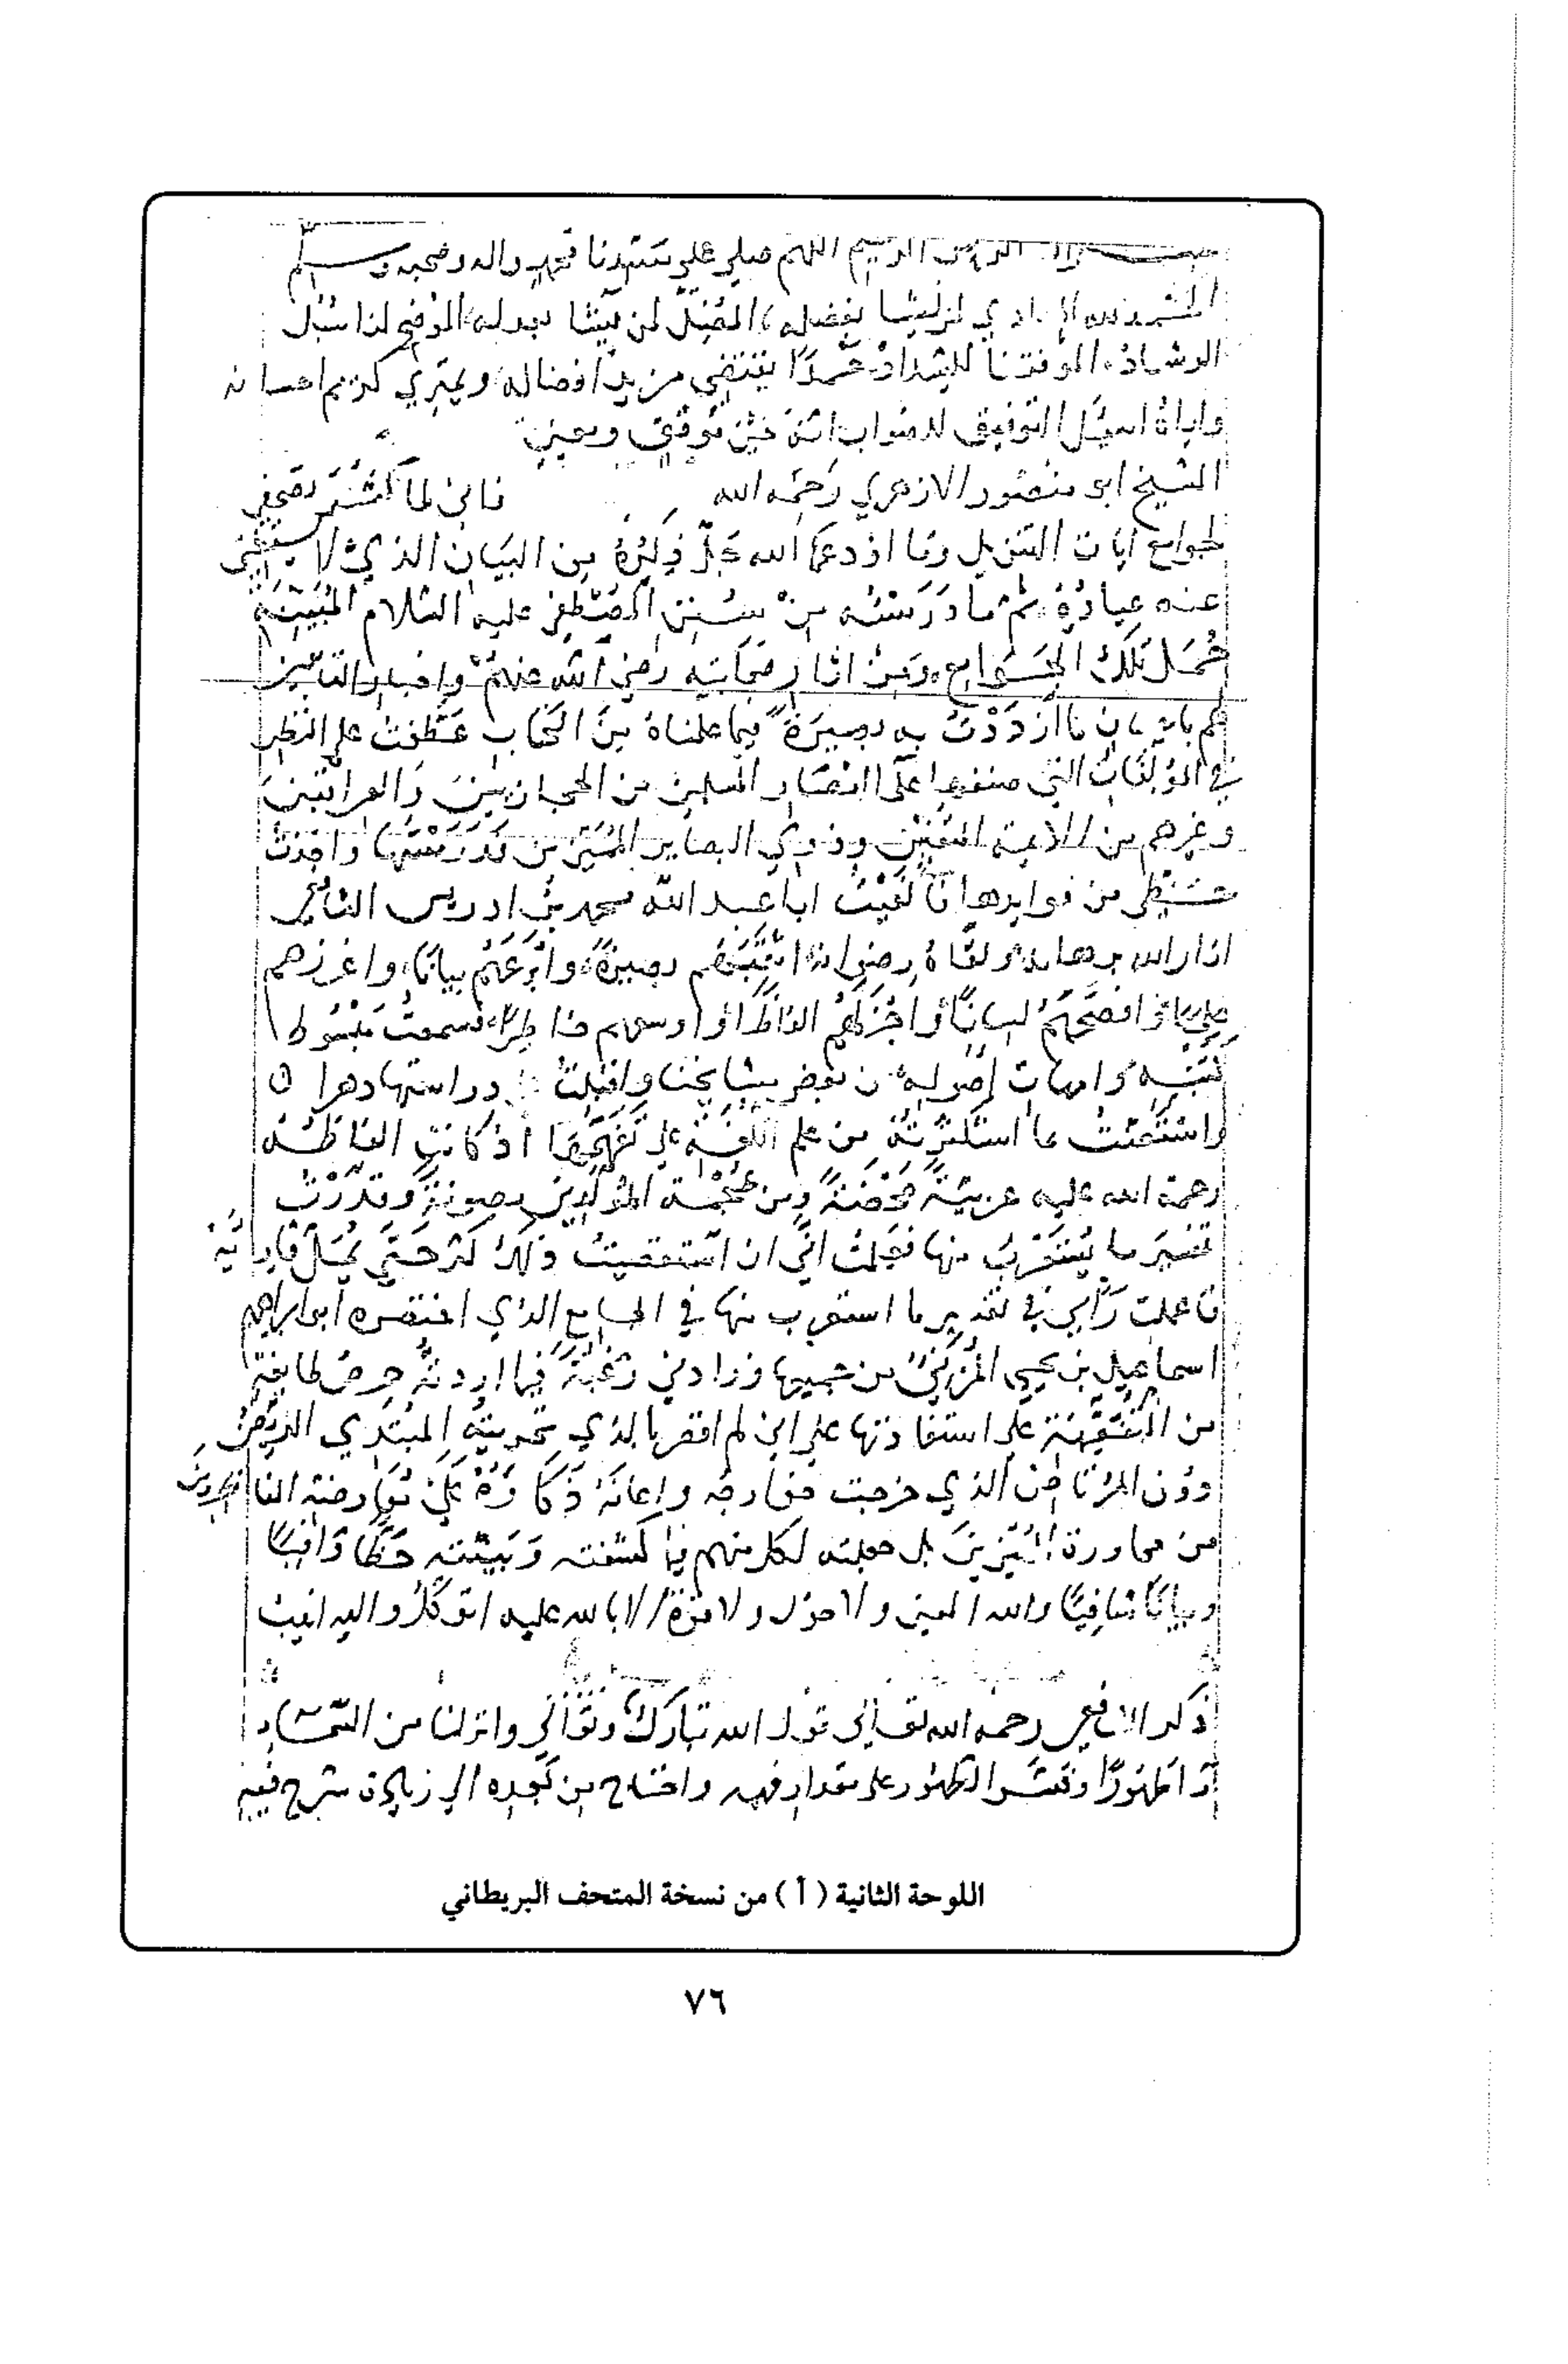 بسم الله الرحمن الرحيم اللهم صلي على سيدنا محمد واله وصحبه وسلم
الحمد لله الهادي لمن يشا بفضله المضل لمن يشا بعدله الموضح لنا سبل
الرشاد الموفقنا للسداد حمدا يقتضي مزيد افضاله ويمتري كريم احسانه
واياه اسئل التوفيق للصواب انه خير موفق ومعين
الشيخ ابو منصور الازهري رحمه الله فانى لما
لجوامع ايات التنزيل وما اودعها الله جل ذكره من البيان الذي لا يستغنى
عنه عباده ثم ما درسته من سنن المصطفى عليه السلام المبينة
جمل تلك الجوامع ومن اثار صحابته رضي الله عنهم واخبار التابعين
لهم باحسان ما ازددت به بصيرة فيما علمناه من الكتاب عطفت على النظر
في المؤلفات التي صنفها علما امصار المسلمين من الحجازيين والعراقيين
وغيرهم من الايمة المتقنين وذوي البصاير المميزين فدرستها واخذت
حظي من فوايدها فالفيت ابا عبد الله محمد بن ادريس الشافعي
انار الله برهانه ولقاه رضوانه اثقبهم بصيرة وابرعهم بيانا واغزرهم
علما وافصحهم لسانا واجزلهم الفاظا واوسعهم خاطرا فسمعت مبسوط
كتبه وامهات اصوله من بعض مشايخنا واقبلت دراستها دهرا
واستعنت بما استكثرته من علم اللغة على تفهمها اذ كانت الفاظه
رحمة الله عليه عربية محضة ومن عجمة المولدين مصونة وقدرت
تفسير ما يستغرب منها فعلمت اني ان استقصيت ذلك كثر حتى يمل قاريه
فاعملت رأيي في تفسير ما استغرب منها في الجامع الذي اختصره ابو ابراهيم
اسماعيل بن يحيى المزني من جميعها وزادني رغبة فيما اردته حرص طايفة
من المتفقهة على استفادتها على اني لم اقصر بالذي تحريته المبتدي الريض
دون المرتاض الذي خرجت مخارجه واعانه ذكاؤه على معارضة الناظرين
من محاورة المميزين بل جعلته لكل منهم فيما كشفته وبينته حظا وافيا
وبيانا شافيا والله المعين ولا حول ولا قوة الا بالله عليه اتوكل واليه انيب
ذكر الشافعي رحمه الله تعالى قول الله تبارك وتعالى وانزلنا من السماء
ما طهورا وفسر الطهور على مقدار فهمه واحتاج من بعده الى زيادة شرح فيه
اللوحة الثانية ( أ ) من نسخة المتحف البريطاني
٧٦